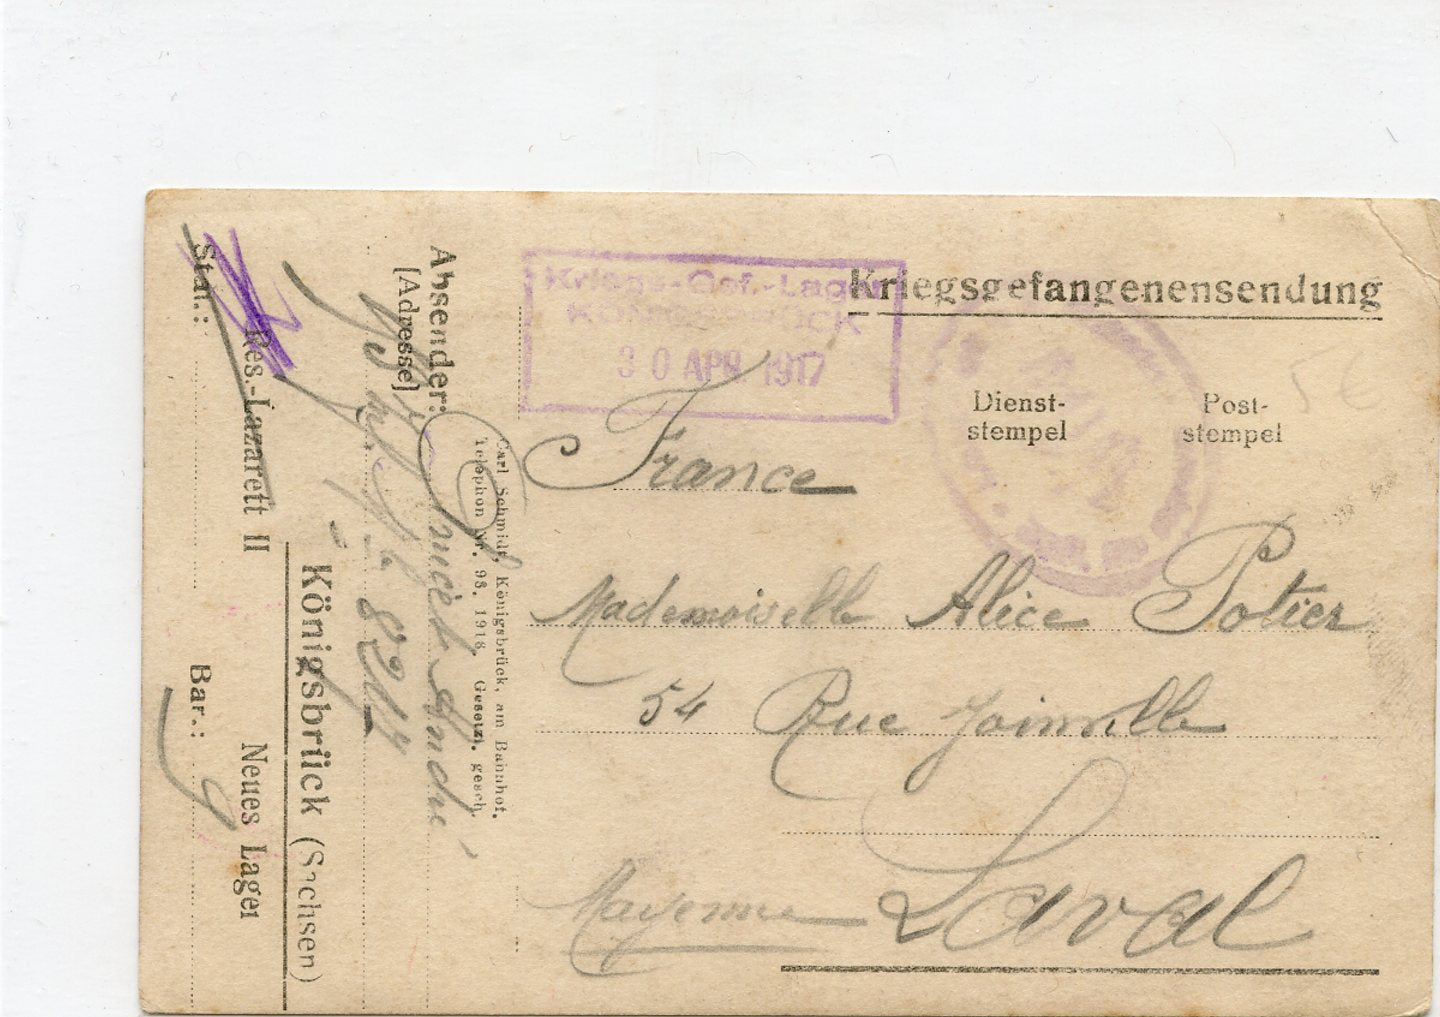 Kriegsgefangenensendung
Kriegs-Gef.-Lager
KÖNIGSBRÜCK
30 APR. 1917
Dienst-
stempel
Post-
stempel
France
Mademoiselle Alice Potier
54 Rue Joinville
Laval
Mayenne
Carl Schmidt, Königsbrück, am Bahnhof.
Telephon Nr. 98. 1916. Gesetzl. gesch.
Absender:
[Adresse]
André
8214
Königsbrück (Sachsen)
Res.-Lazarett II Neues Lager
Stat.: Bar.: 9